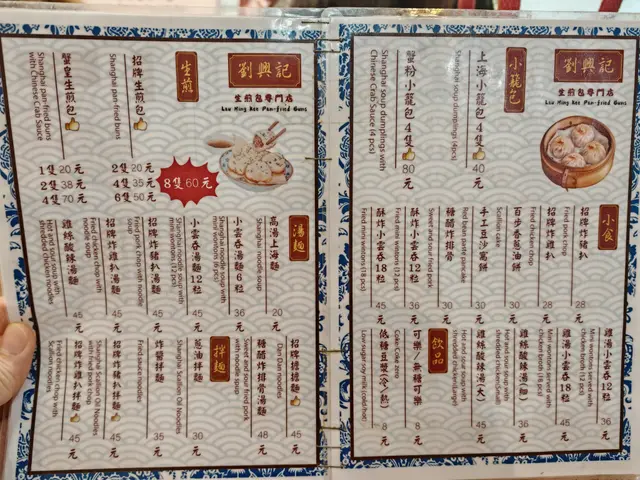 劉興記
生煎包專門店
Lau Hing Kee Pan-fried Buns
生煎
招牌生煎包
Shanghai pan-fried buns
2隻 20 元
4隻 35 元
6隻 50 元
8隻60元
蟹皇生煎包
Shanghai pan-fried buns with Chinese Crab Sauce
1隻 20 元
2隻 38 元
4隻 70 元
湯麵
高湯上海麵
Shanghai noodle soup
20 元
小雲吞湯麵 6粒
36 元
小雲吞湯麵 12粒
45 元
招牌炸豬扒湯麵
Fried pork chop with noodle soup
45 元
招牌炸雞扒湯麵
Fried chicken chop with noodle soup
45 元
雞絲酸辣湯麵
Hot and sour soup with shredded chicken noodles
45 元
招牌擔擔麵
Dan dan noodles
45 元
糖醋炸排骨湯麵
Sweet and sour fried pork with noodle soup
48 元
拌麵
蔥油拌麵
Shanghai Scallion Oil Noodles
30 元
炸醬拌麵
Fried sauce noodles
35 元
招牌炸豬扒拌麵
Shanghai Scallion Oil Noodles with fried pork chop
45 元
招牌炸雞扒拌麵
Fried chicken chop with Scallion noodles
45 元
劉興記
生煎包專門店
Lau Hing Kee Pan-fried Buns
小籠包
上海小籠包 4隻
Shanghai soup dumplings (4pcs)
40 元
蟹粉小籠包 4隻
Shanghai soup dumplings with Chinese Crab Sauce (4 pcs)
80 元
小食
招牌炸豬扒
Fried pork chop
28 元
招牌炸雞扒
Fried chicken chop
28 元
百步香蔥油餅
Scallion cake
30 元
手工豆沙窩餅
Red bean paste pancake
30 元
糖醋炸排骨
Sweet and sour fried pork
36 元
酥炸小雲吞 12粒
Fried mini wontons (12 pcs)
36 元
酥炸小雲吞 18粒
Fried mini wontons (18 pcs)
45 元
雞湯小雲吞 12粒
Mini wontons served with chicken broth (12 pcs)
36 元
雞湯小雲吞 18粒
Mini wontons served with chicken broth (18 pcs)
45 元
雞絲酸辣湯(細)
Hot and sour soup with shredded chicken(small)
36 元
雞絲酸辣湯(大)
Hot and sour soup with shredded chicken(large)
45 元
飲品
可樂/無糖可樂
Coke/ Coke zero
8 元
低糖豆漿(冷/熱)
Low sugar soy milk (cold/hot)
8 元